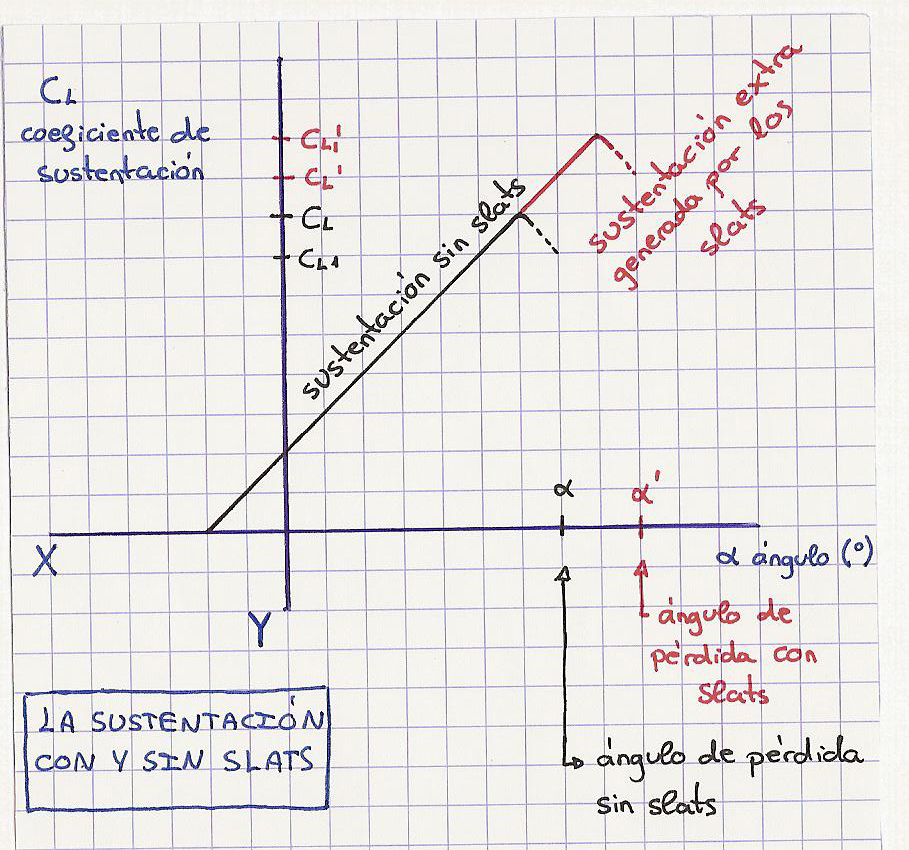 CL
coeficiente de
sustentación
CL1'
CL'
CL
CL1
sustentación sin slats
sustentación extra
generada por los
slats
α
α'
X
α ángulo (°)
Y
ángulo de
pérdida con
slats
LA SUSTENTACIÓN
CON Y SIN SLATS
ángulo de pérdida
sin slats